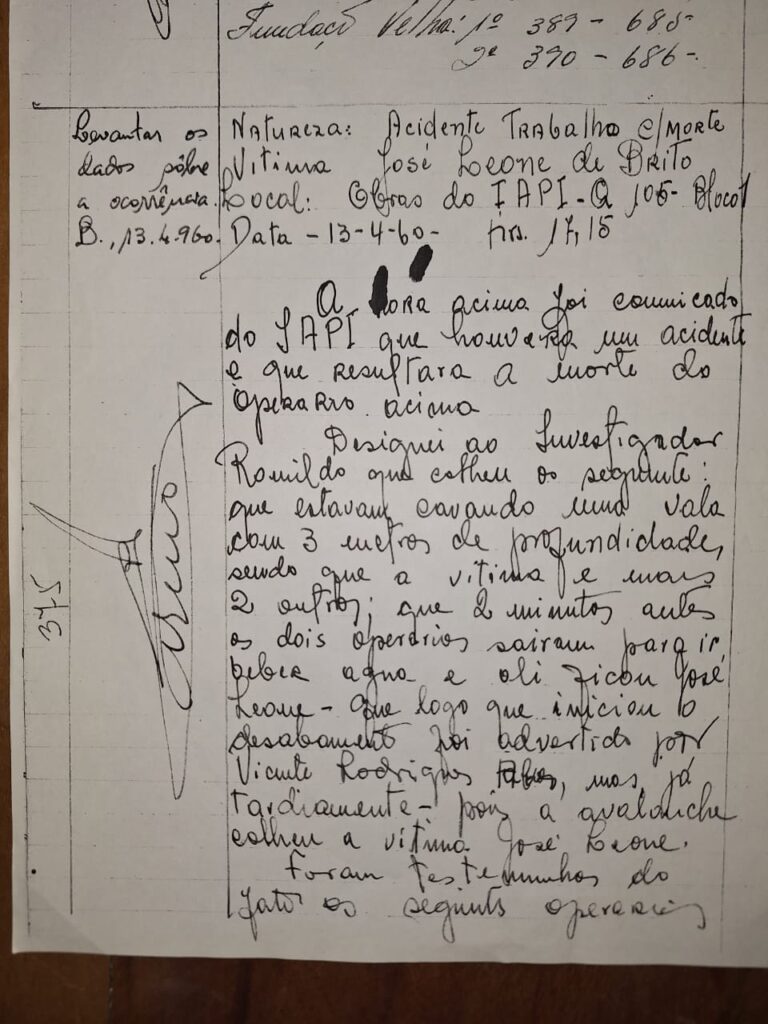 Fundaçõ Velha: 1º 389 - 685-
2ª 390 - 686-
Levantar os
dados sôbre
a ocorrência.
B., 13.4.960.
Natureza: Acidente Trabalho c/morte
Vitima José Leone de Brito
Local: Obras do IAPI - Q 105- Bloco 1
Data - 13-4-60- hrs. 17,15
A hora acima foi comunicado
do IAPI que houvera um acidente
e que resultara a morte do
operario acima
Designei ao Investigador
Romildo que colheu os seguinte:
que estavam cavando uma vala
com 3 metros de profundidade,
sendo que a vitima e mais
2 outros; que 2 minutos antes
os dois operarios sairam para ir
beber agua e ali ficou José
Leone - que logo que iniciou o
desabamento foi advertido por
Vicente Rodrigues mas, já
tardiamente - pois a avalanche
colheu a vitima José Leone.
Foram testemunhas do
fato os seguints operarios
375